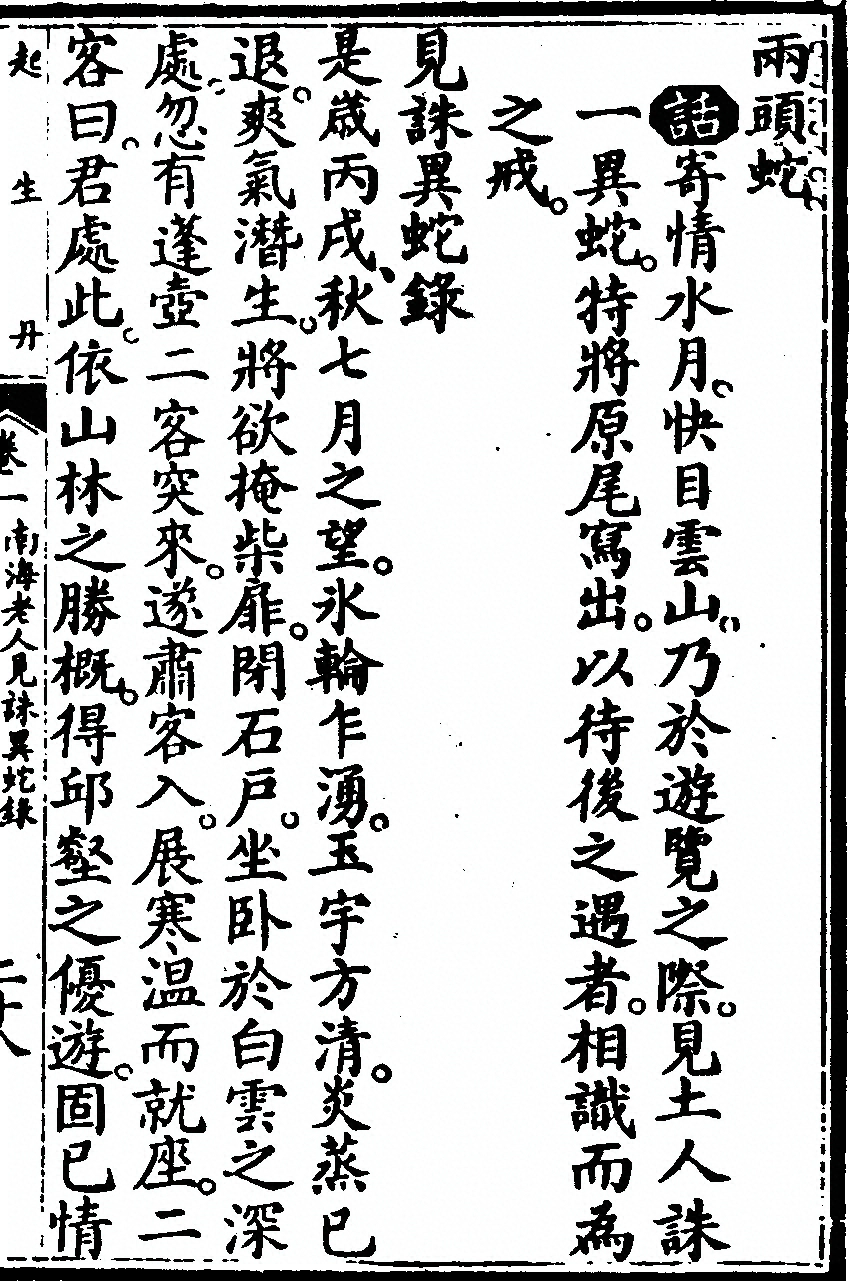 兩頭蛇
話寄情水月。快目雲山。乃於遊覽之際。見土人誅
一異蛇。特將原尾寫出。以待後之遇者。相識而為
之戒。
見誅異蛇錄
是歲丙戌、秋七月之望。氷輪乍湧。玉宇方清。炎蒸已
退。爽氣潛生。將欲掩柴扉。閉石戶。坐卧於白雲之深
處。忽有蓬壺二客突來。遂肅客入。展寒温而就座。二
客曰。君處此。依山林之勝概。得邱壑之優遊。固已情
起生丹
卷一 南海老人見誅異蛇錄 二十八